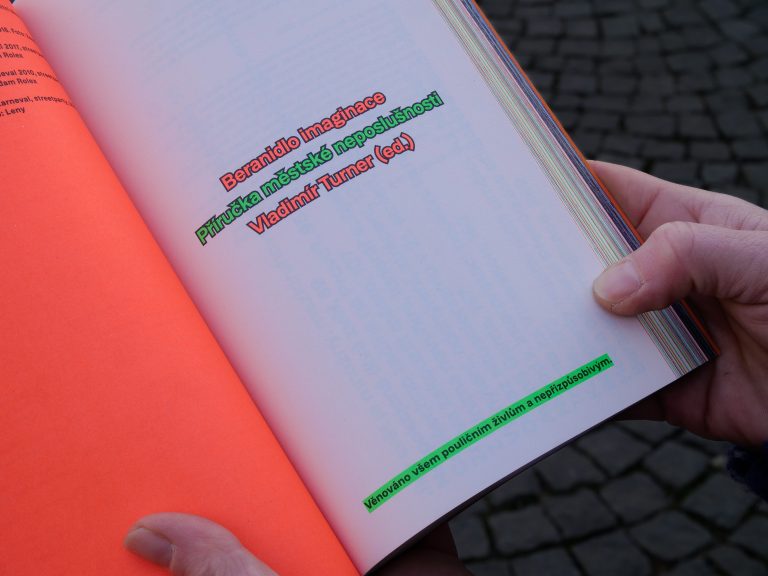 2018, Foto
2017, street
Rolex
eval 2010, street
dam Rolex
arneval, streetparty
: Leny
Beranidlo imaginace
Příručka městské neposlušnosti
Vladimír Turner (ed.)
Věnováno všem pouličním živlům a nepřizpůsobivým.